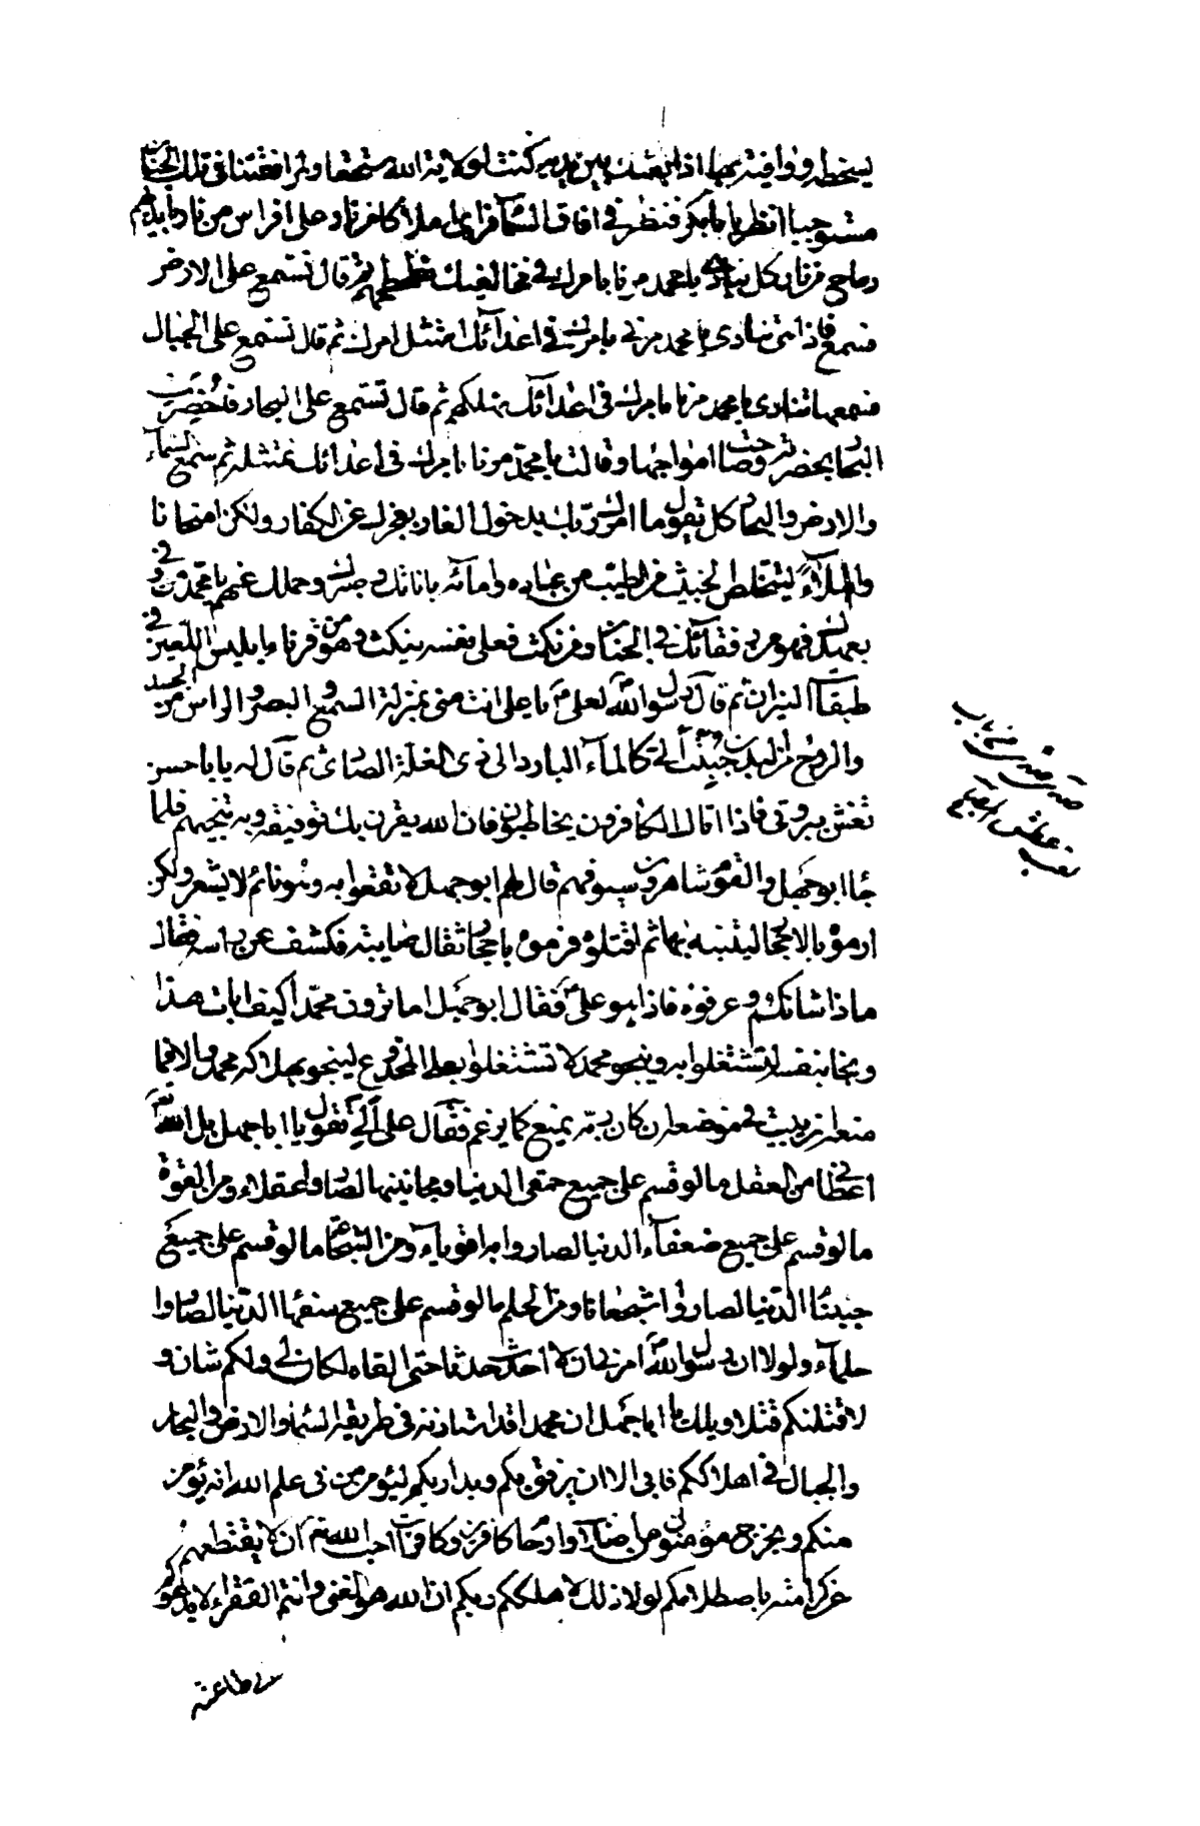 يسخطه ووافيته بها اذا بعثك بين يديه كنت لولاية الله مستحقا ولمرافقتنا في تلك الجنان
مستوجبا انظر يا بابكر فنظر في افاق السماء فراى املاكا من نار على افراس من نار بايديهم
رماح من نار كل ينادي يا محمد مرنا بامرك في مخالفيك نطحطحهم ثم قال تسمع على الارض
فتسمع فاذا هي تنادي يا محمد مرني بامرك في اعدائك امتثل امرك ثم قال تسمع على الجبال
فتسمعها تنادي يا محمد مرنا بامرك في اعدائك نهلكهم ثم قال تسمع على البحار فاحضرت
البحار بحضرته وصاحت امواجها وقالت يا محمد مرنا بامرك في اعدائك نمتثله ثم سمع السماء
والارض والبحار كل يقول ما امرك ربك بدخول الغار لعجزك عن الكفار ولكن امتحانا
وابتلاء ليتخلص الخبيث من الطيب من عباده وامائه باناتك وصبرك وحملك عنهم يا محمد من وفى
بعهدك فهو من رفقائك في الجنان ومن نكث فعلى نفسه ينكث وهو من قرناء ابليس اللعين في
طبقات النيران ثم قال رسول الله لعلي يا علي انت مني بمنزلة السمع والبصر والراس من الجسد
والروح من البدن حببت الي كالماء البارد الى ذي الغلة الصادي ثم قال له يا باحسن
تغش ببردتي فاذا اتاك الكافرون يخاطبونك فان الله يقرن بك توفيقه وبه تجيبهم فلما
جاء ابو جهل والقوم شاهرون سيوفهم قال لهم ابو جهل لا تقعوا به وهو نائم لا يشعر ولكن
ارموه بالاحجار لينتبه بها ثم اقتلوه فرموه باحجار ثقال صايبة فكشف عن راسه فقال
ما ذا شانكم وعرفوه فاذا هو علي فقال ابو جهل اما ترون محمدا كيف ابات هذا
ونجا بنفسه لتشتغلوا به وينجو محمد لا تشتغلوا بعلي المخدوع لينجو بهلاكه محمد والا فما
منعه ان يبيت في موضعه ان كان ربه يمنع كما يزعم فقال علي الي تقول يا ابا جهل بل الله
اعطاني من العقل ما لو قسم على جميع حمقى الدنيا ومجانينها لصاروا به عقلاء ومن القوة
ما لو قسم على جميع ضعفاء الدنيا لصاروا به اقوياء ومن الشجاعة ما لو قسم على جميع
جبناء الدنيا لصاروا شجعانا ومن الحلم ما لو قسم على جميع سفهاء الدنيا لصاروا
حلماء ولولا ان رسول الله امرني ان لا احدث حدثا حتى القاه لكان لي ولكم شان و
لاقتلنكم قتلا ويلك يا ابا جهل ان محمدا قد استاذنه في طريقه السماء والارض والبحار
والجبال في اهلاككم فابى الا ان يرفق بكم ويداريكم ليؤمن من في علم الله انه يؤمن
منكم ويخرج مؤمنون من اصلاب وارحام كافرين وكافرات احب الله تع ان لا يقتطعهم
عن كرامته باصطلامكم لولا ذلك لاهلككم ربكم ان الله هو الغني وانتم الفقراء لا يدعوكم
الى طاعته